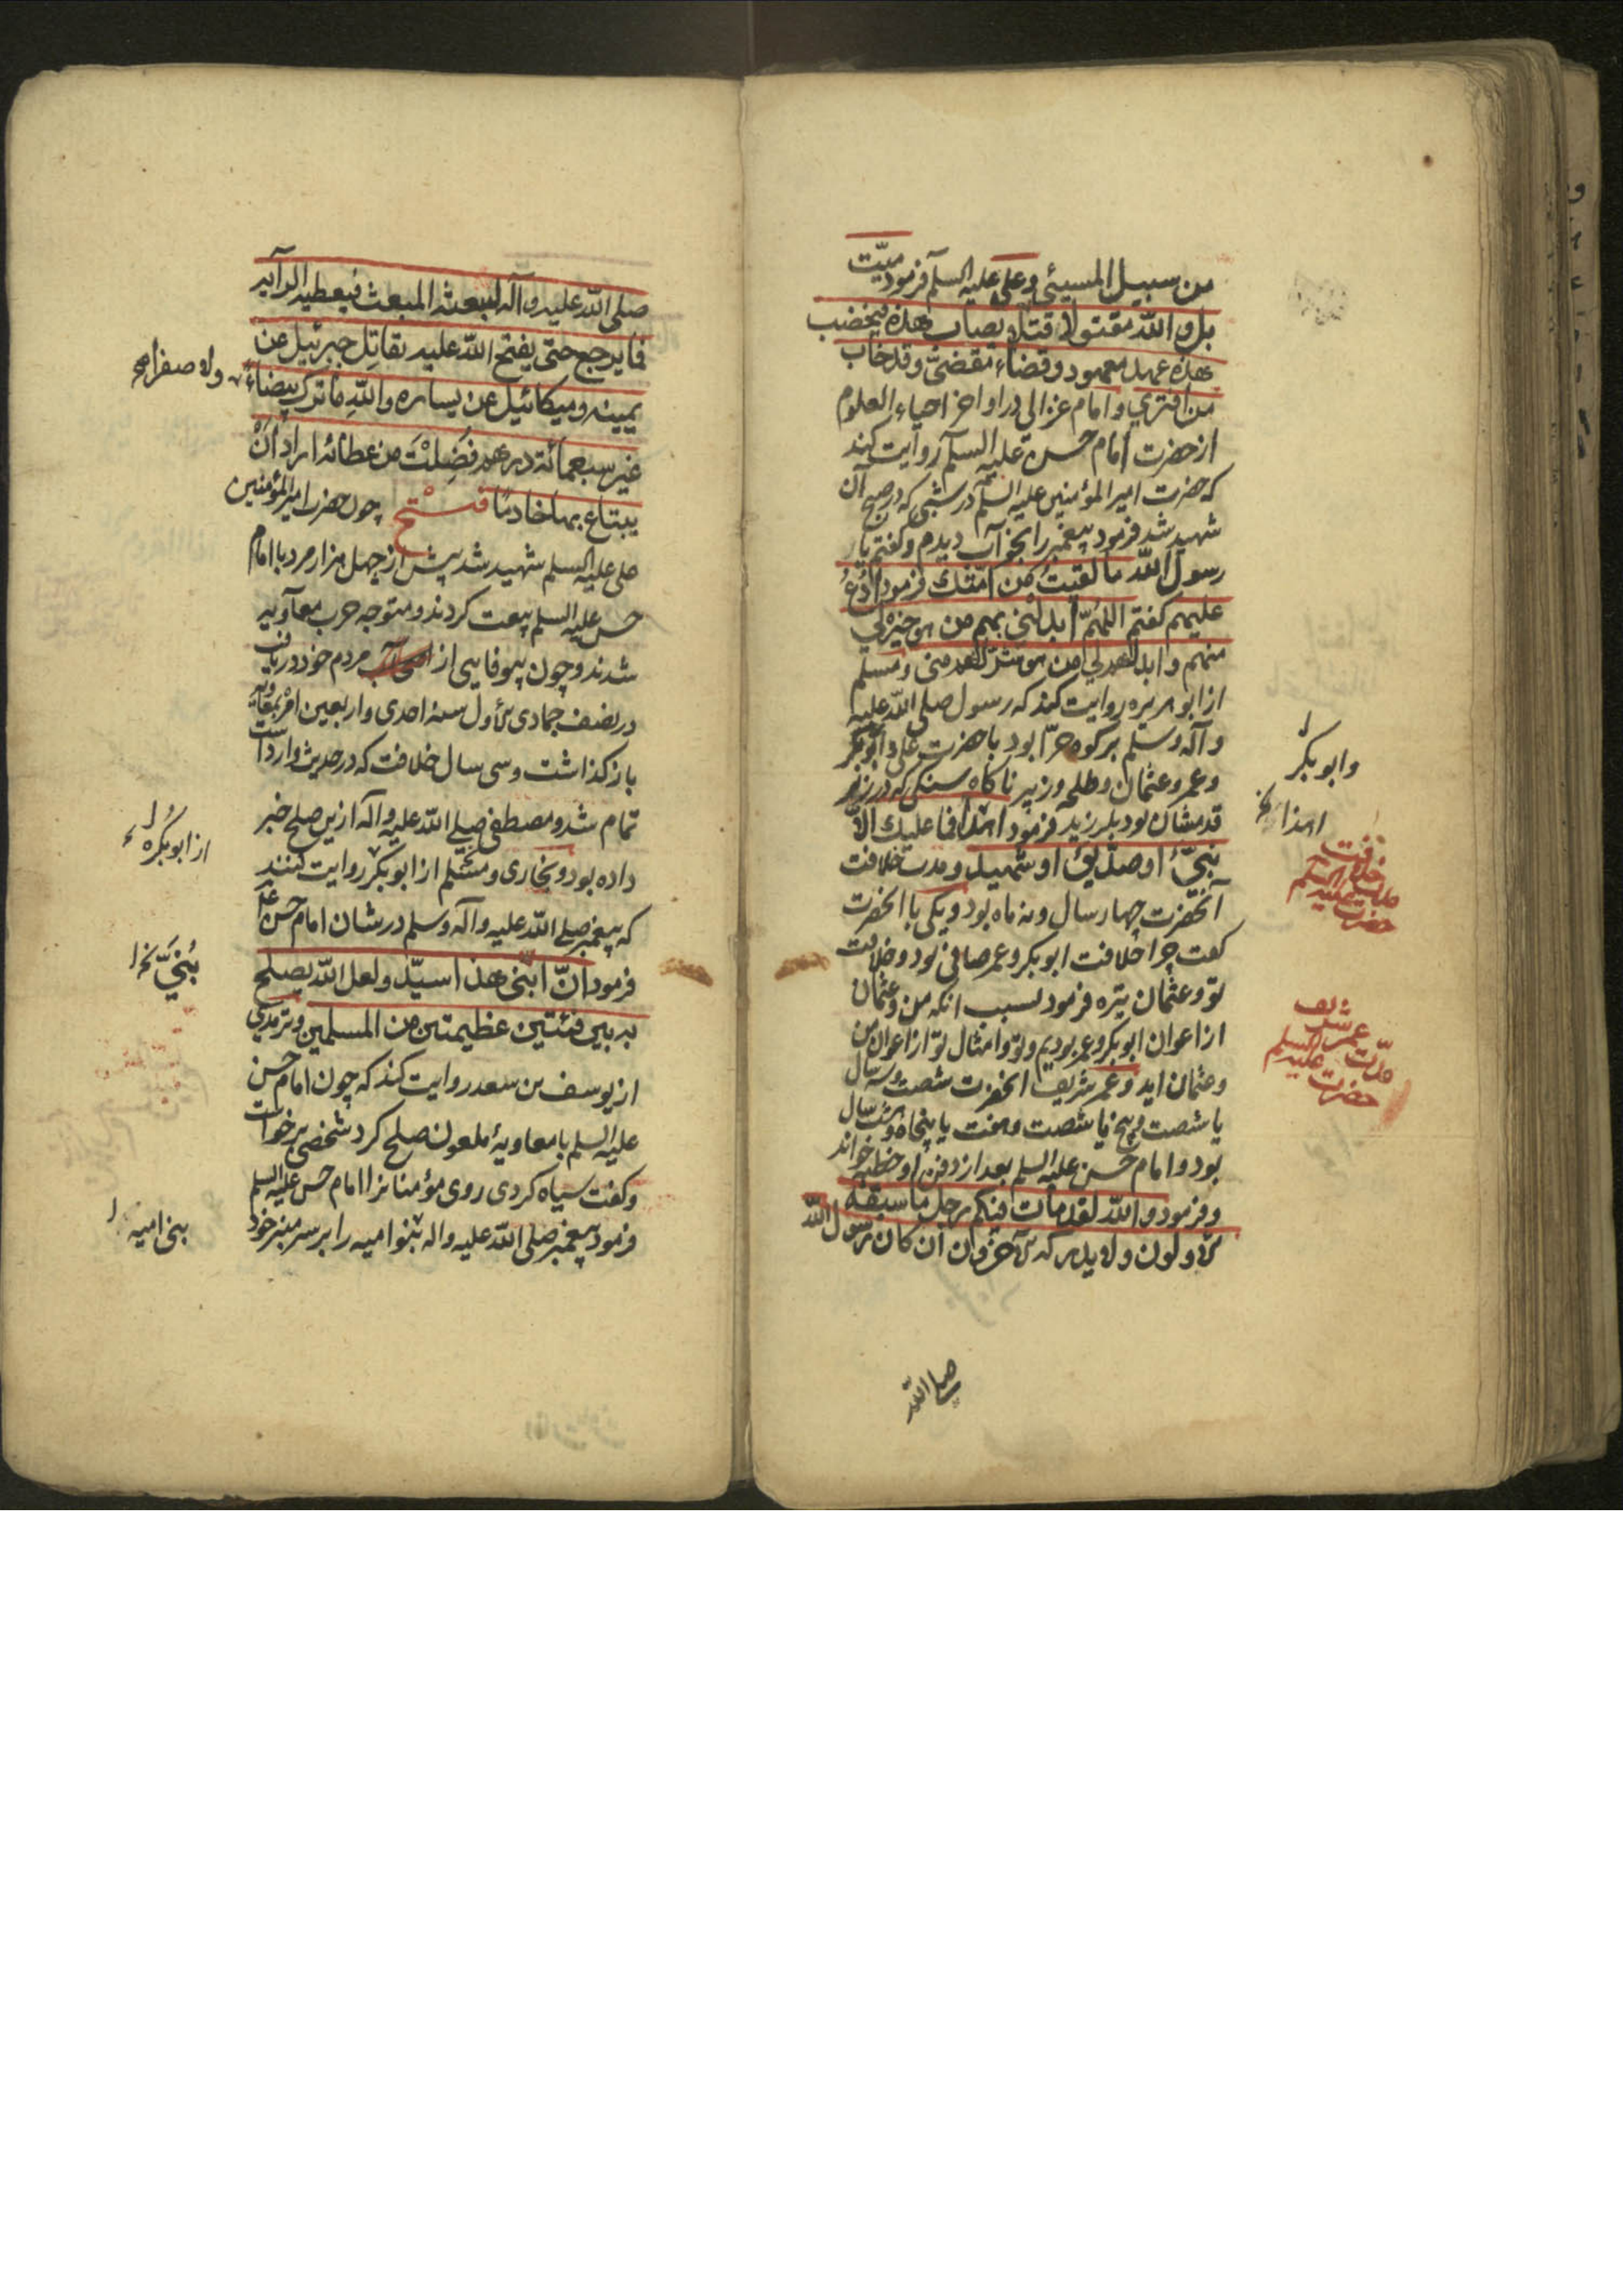 من سبیل المسیئی وعلی علیه السلم فرمود میّت
بل والله مقتولا قتلا یصاب هذه فیخضب
هذه عهد معهود وقضاء مقضیّ وقد خاب
من افتری و امام غزالی در اواخر احیاء العلوم
از حضرت امام حسن علیه السلم روایت کند
که حضرت امیرالمؤمنین علیه السلم در شبی که در صبح آن
شهید شد فرمود پیغمبر را بخواب دیدم و کفتم یا
رسول الله ما لقیت من امّتك فرمود اُدْعُ
علیهم کفتم اللهُمّ ابدلنی بهم من هو خیر لی
منهم و ابدلهم لی من هو شرّ لهم منی و مسلم
از ابو هریره روایت کند که رسول صلی الله علیه
و آله وسلم بر کوه حرّا بود با حضرت علی و ابوبکر
وعمر وعثمان وطلحه وزبیر ناکاه سنکی که در زیر
قدمشان بود بلرزید فرمود اهذا فما علیك الاّ
نبیّ او صدّیق او شهید و مدت خلافت
آنحضرت چهار سال و نه ماه بود و یکی با انحضرت
کفت چرا خلافت ابوبکر و عمر صافی بود و خلافت
تو و عثمان تیره فرمود بسبب انکه من و عثمان
از اعوان ابوبکر و عمر بودیم و تو و امثال تو از اعوان من
وعثمان اید و عمر شریف انحضرت شصت و سه سال
یا شصت و پنج یا شصت و هفت یا پنجاه و هشت سال
بود و امام حسن علیه السلم بعد از دفن او خطبه خواند
و فرمود و الله لقد مات فیکم رجل ما سبقه
الاولون ولا یدرکه الآخرون ان کان رسول الله
صلی الله
وابوبکر
اهذا
مدت خلافت حضرت علیه السلم
مدّت عمر شریف حضرت علیه السلم
صلی الله علیه و آله لیبعثه المبعث فیعطیه الرآیه
فما یرجع حتی یفتح الله علیه یقاتِل جبرئیل عن
یمینه و میکائیل عن یساره واللهِ ما ترك بیضاءَ
غیر سبعمائة درهم فَضَلَتْ من عطائه اراد أنْ
یبتاع بها خادمًا فتح چون حضرت امیرالمؤمنین
علی علیه السلم شهید شد بیش از چهل هزار مرد با امام
حسن علیه السلم بیعت کردند و متوجه حرب معاویه
شدند و چون بیوفایی از مردم خود دریافت
در نصف جمادی الأول سنهٔ احدی و اربعین امر بمعاویه
باز کذاشت و سی سال خلافت که در حدیث وارد است
تمام شد و مصطفی صلی الله علیه و آله ازین صلح خبر
داده بود و بخاری و مسلم از ابوبکر روایت کنند
که پیغمبر صلی الله علیه و آله وسلم در شان امام حسن
فرمود انّ ابنی هذا سیّد ولعل الله یصلح
به بین فئتین عظیمتین من المسلمین و ترمذی
از یوسف بن سعد روایت کند که چون امام حسن
علیه السلم با معاویهٔ ملعون صلح کرد شخصی برخواست
و کفت سیاه کردی روی مؤمنانرا امام حسن علیه السلم
فرمود پیغمبر صلی الله علیه و اله بنوامیه را بر سر منبر خود
ولا صفراء
از ابوبکره
بُنَیّ
بنی امیه